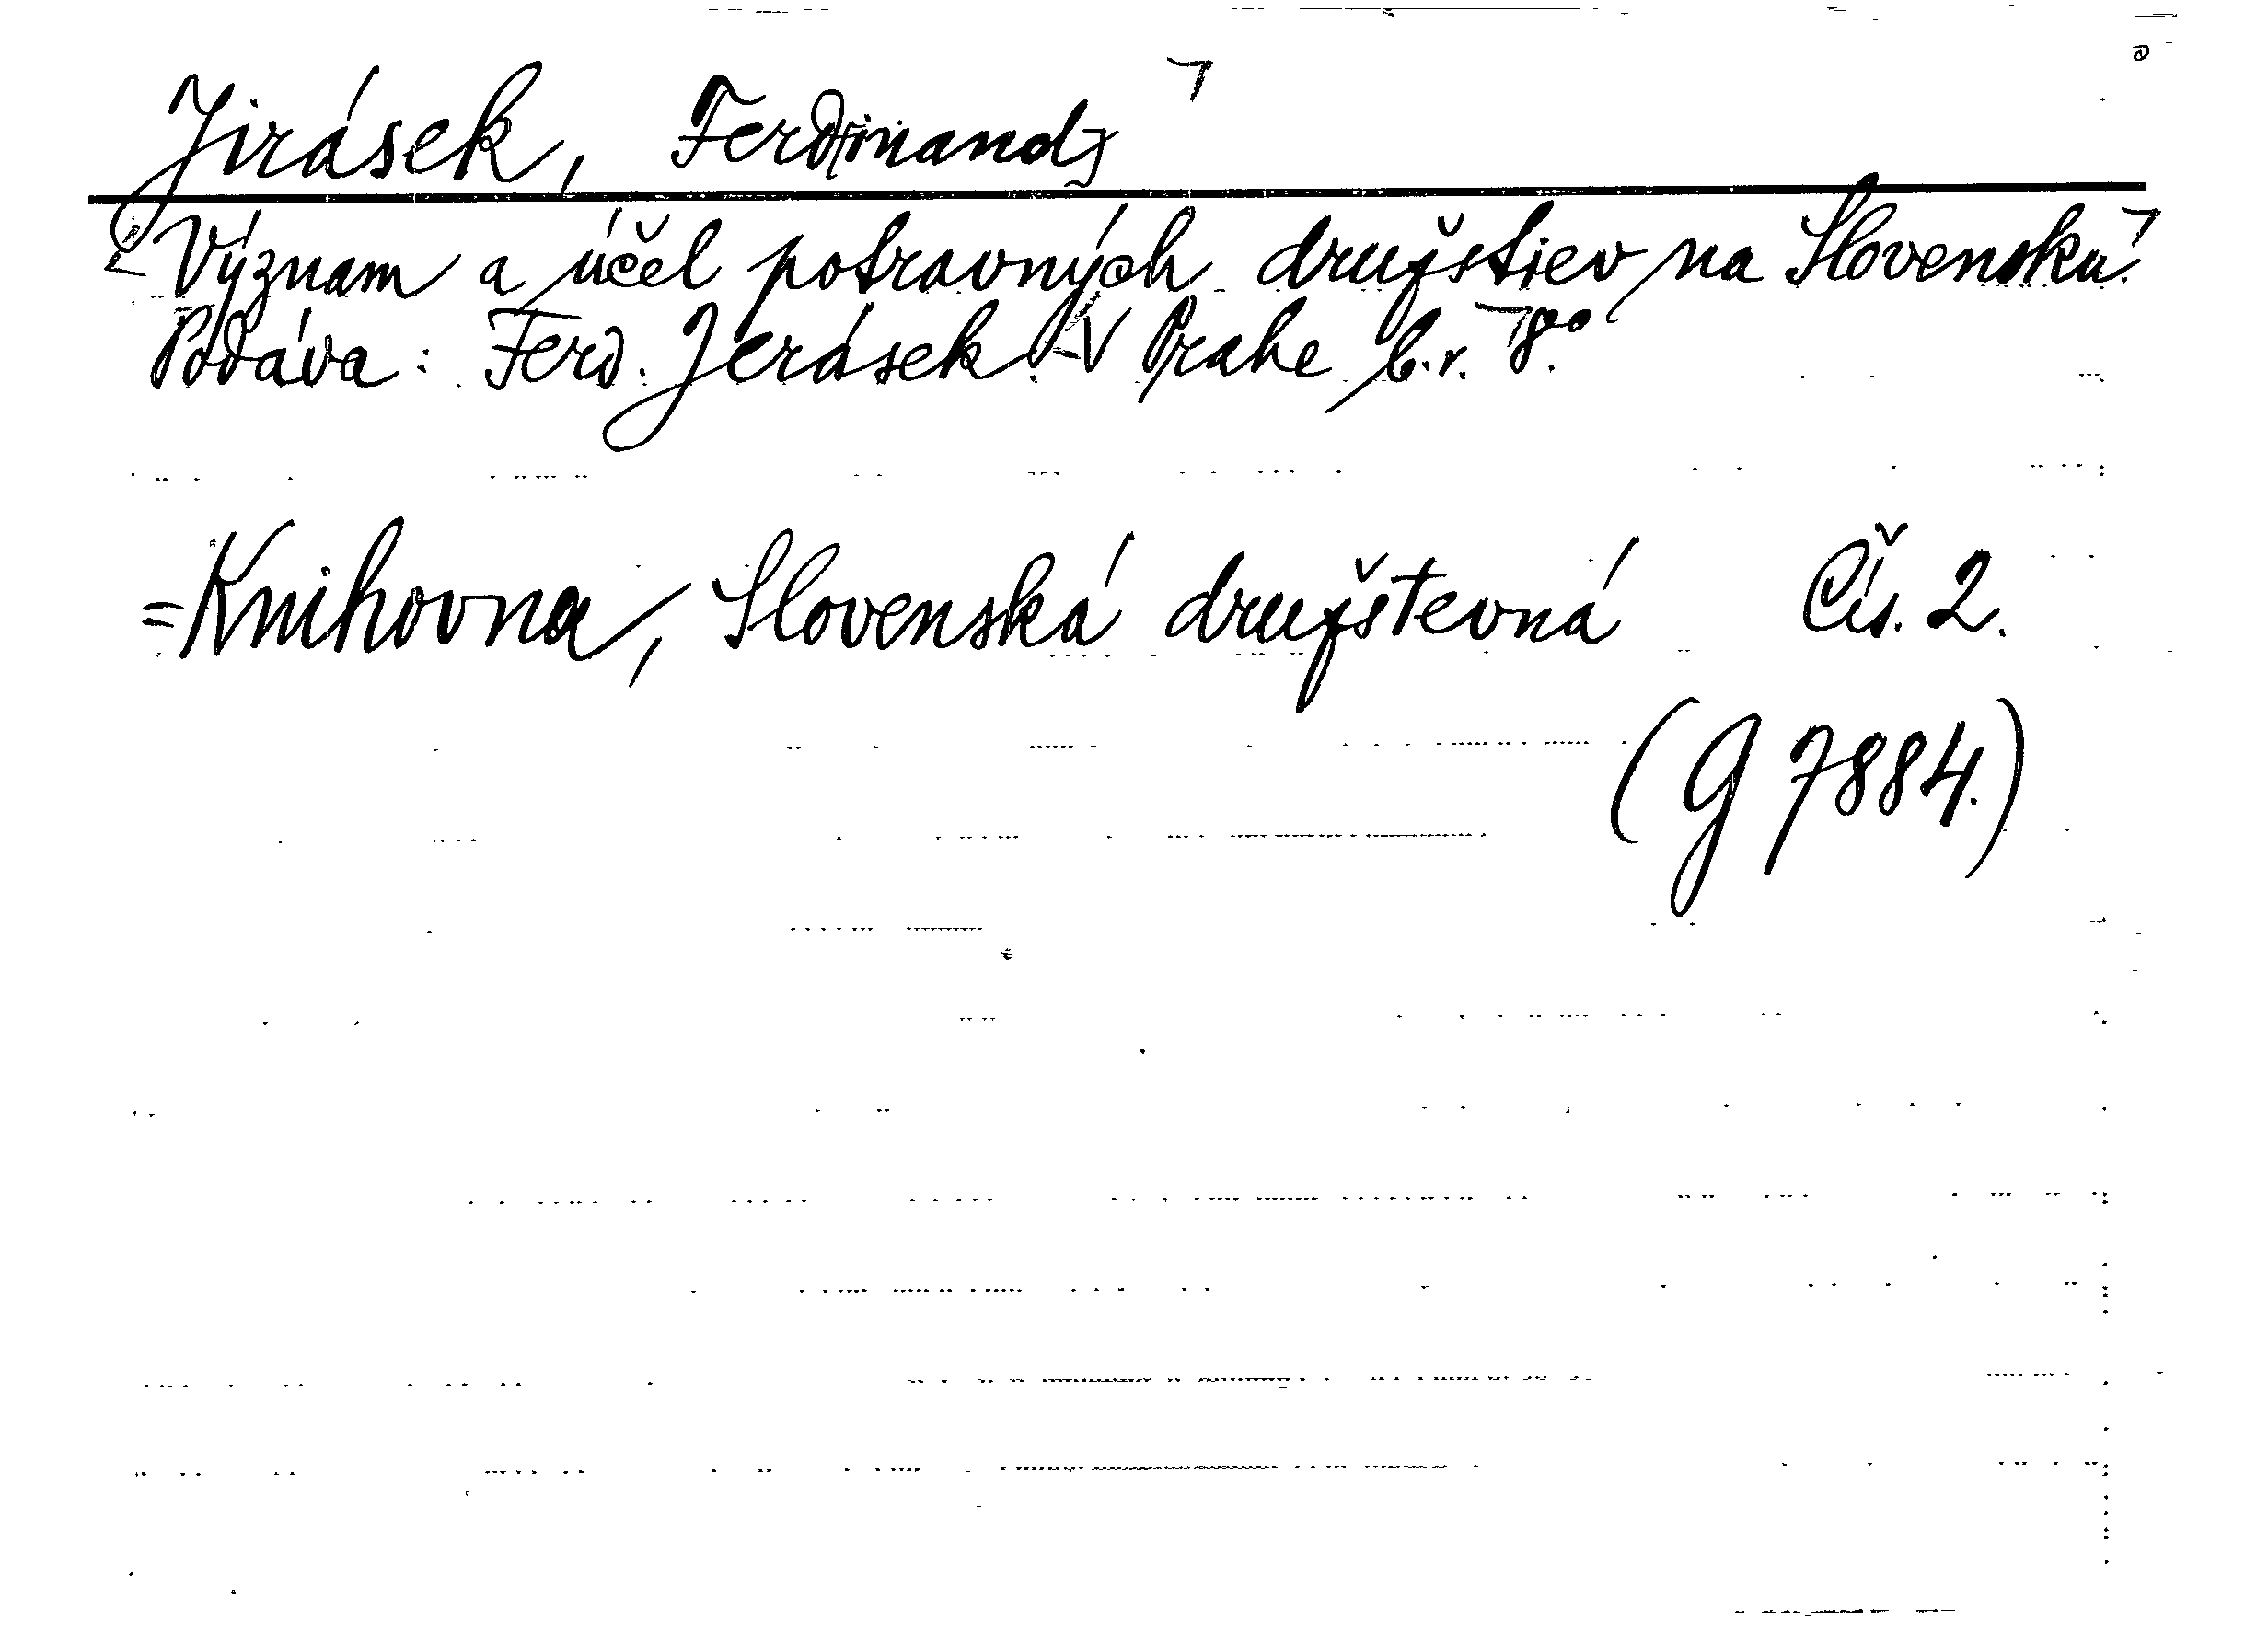 Jirásek, Ferd[inand]
Význam a účel potravných družstiev na Slovensku.
Podáva: Ferd. Jerásek. V Prahe b.r. 8°.
=Knihovna, Slovenská družstevná Čís. 2.
(G 7884.)